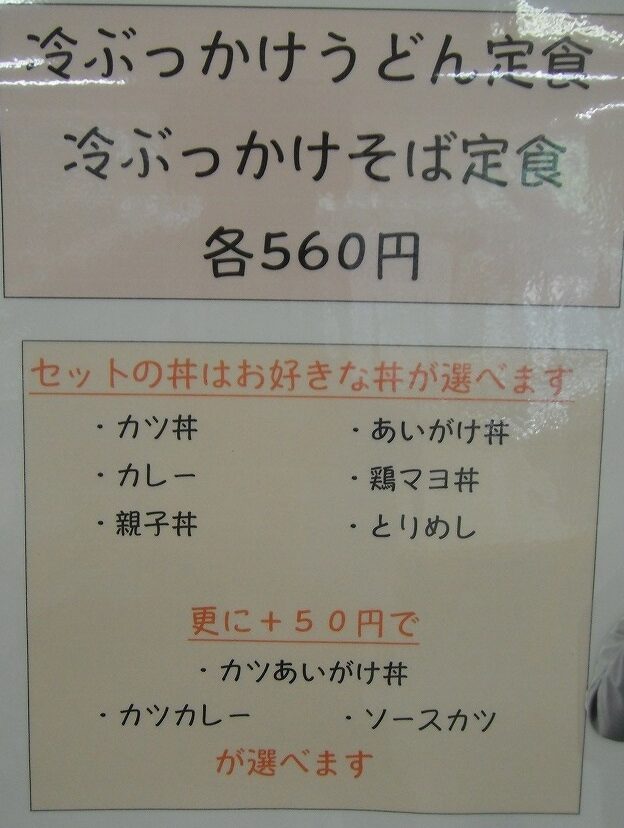 冷ぶっかけうどん定食
冷ぶっかけそば定食
各560円
セットの丼はお好きな丼が選べます
・カツ丼 ・あいがけ丼
・カレー ・鶏マヨ丼
・親子丼 ・とりめし
更に＋５０円で
・カツあいがけ丼
・カツカレー ・ソースカツ
が選べます